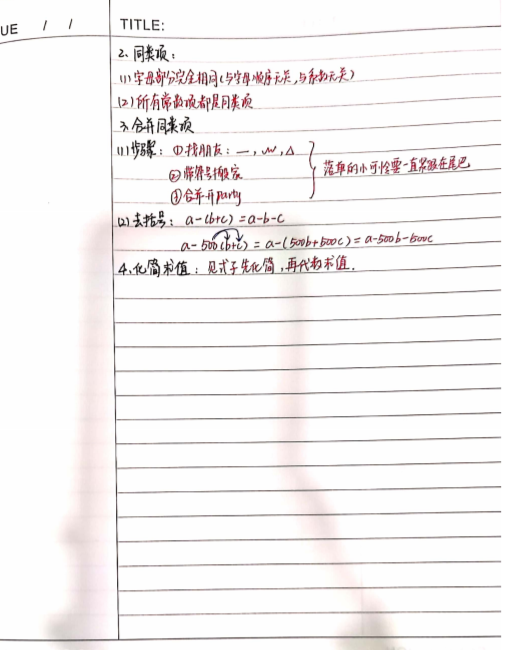 UE / /
TITLE:
2、同类项：
(1)字母部分完全相同(与字母顺序无关，与系数无关)
(2)所有常数项都是同类项
3、合并同类项
(1)步骤：①找朋友：—，﹏，△
②带符号搬家
③合并开party
落单的小可怜要一直紧跟在尾巴
(2)去括号：a-(b+c)=a-b-c
a-500(b+c)=a-(500b+500c)=a-500b-500c
4、化简求值：见式子先化简，再代数求值.